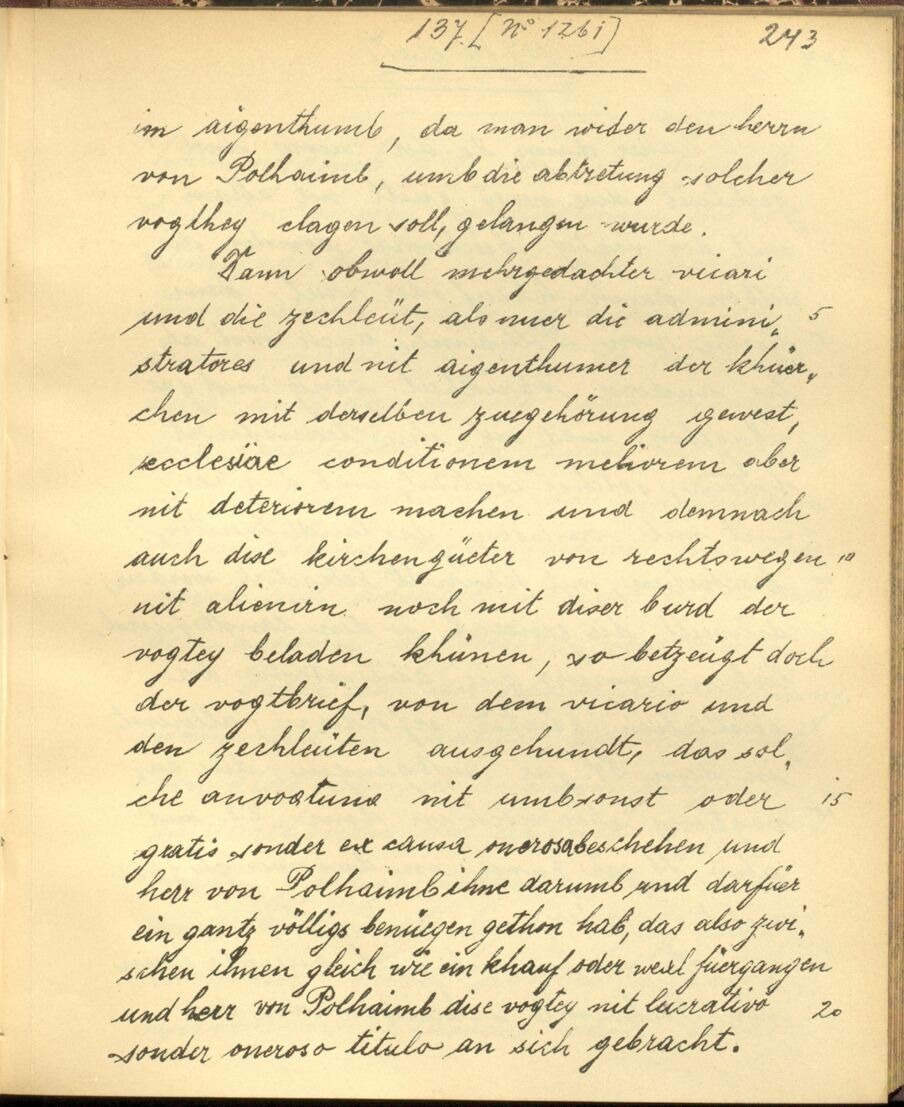 137 [N° 1261]
243
im aigenthumb, da man wider den herrn
von Polhaimb, umb die abtretung solcher
vogthey clagen soll, gelangen wurde.
Dann obwoll mehrgedachter vicari
und die zechleüt, als nuer die admini„ 5
stratores und nit aigenthumer der khüer„
chen mit derselben zuegehörung gewest,
ecclesiae conditionem meliorem aber
nit deteriorem machen und demnach
auch dise kirchengüeter von rechtswegen 10
nit alienirn noch mit diser burd der
vogtey beladen khünen, so betzeügt doch
der vogtbrief, von dem vicario und
den zechleüten ausgehundt, das sol„
che anvogtung nit umbsonst oder 15
gratis sonder ex causa onerosa beschehen und
herr von Polhaimb ihne darumb und darfüer
ein gantz völligs benüegen gethon hab, das also zwi„
schen ihnen gleich wie ein khauf oder wexl füergangen
und herr von Polhaimb dise vogtey nit lucrativo 20
sonder oneroso titulo an sich gebracht.